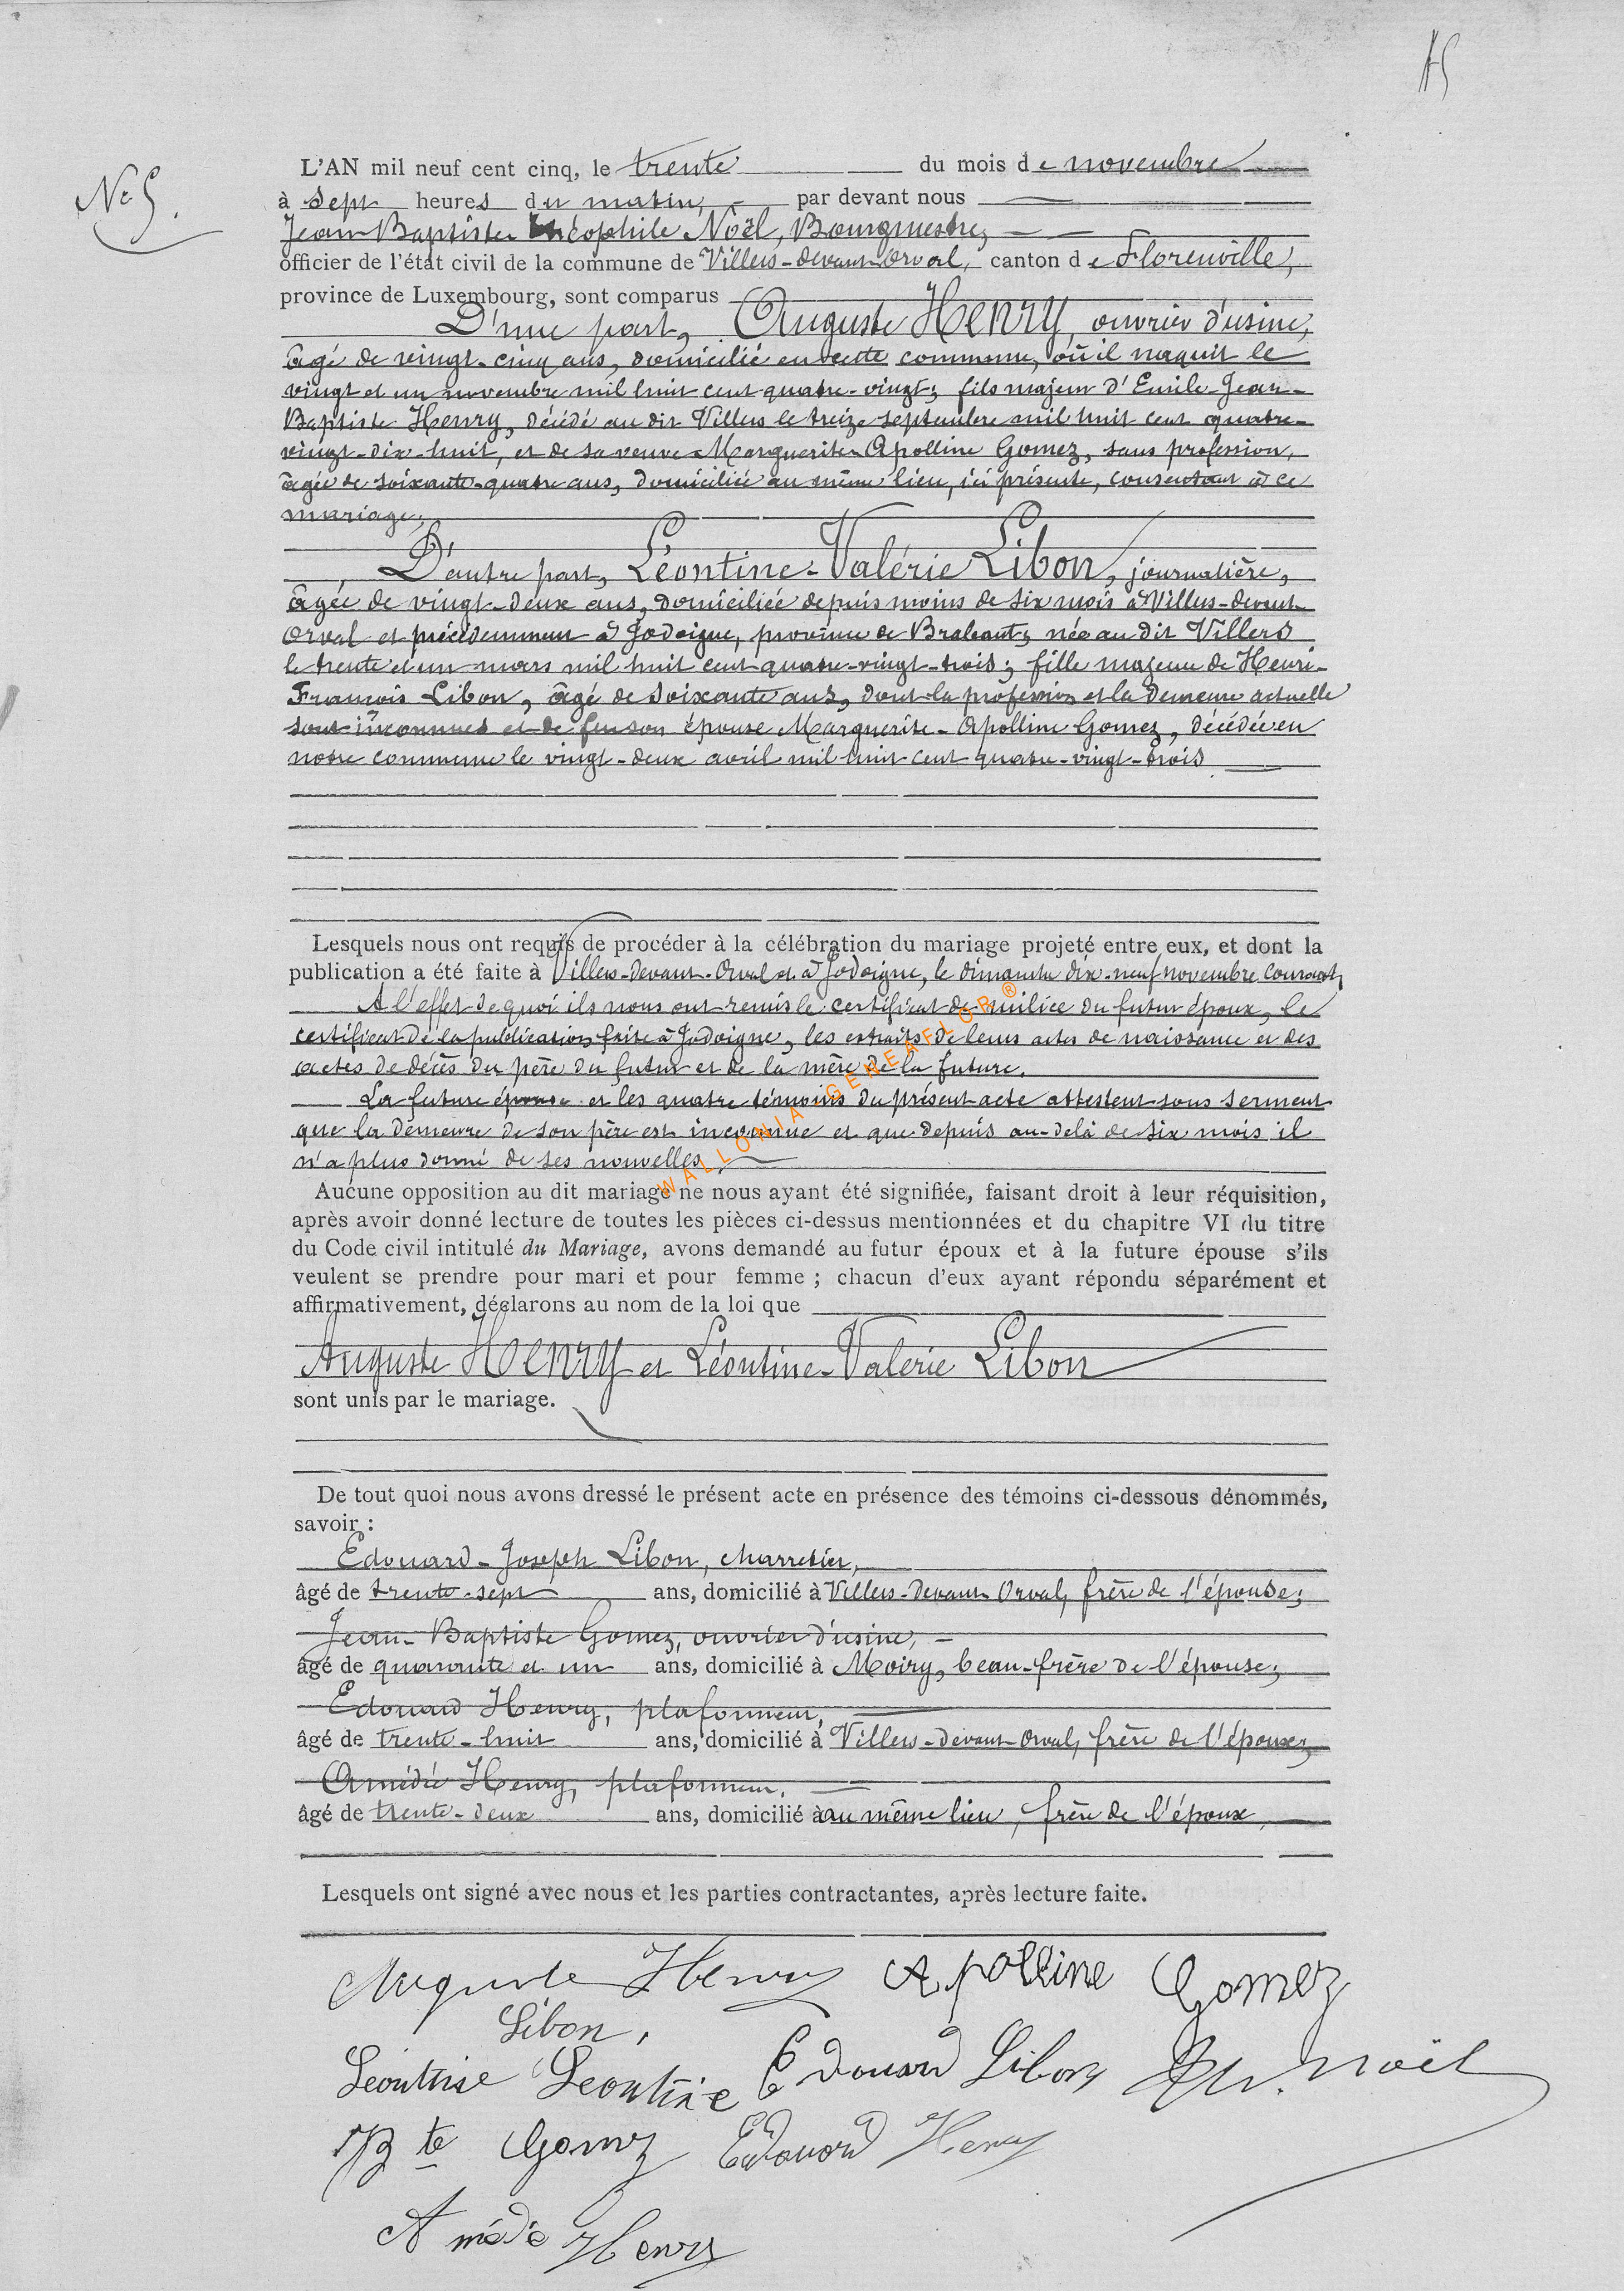 15
L'AN mil neuf cent cinq, le trente du mois de novembre
N° 5.
à sept heures du matin, par devant nous
Jean-Baptiste Théophile Noël, Bourgmestre,
officier de l'état civil de la commune de Villers-devant-Orval, canton de Florenville,
province de Luxembourg, sont comparus
D'une part, Auguste HENRY, ouvrier d'usine,
âgé de vingt-cinq ans, domicilié en cette commune, où il naquit le
vingt et un novembre mil huit cent quatre-vingt; fils majeur d'Emile-Jean-
Baptiste Henry, décédé au dit Villers le treize septembre mil huit cent quatre-
vingt-dix-huit, et de sa veuve Marguerite-Apolline Gomez, sans profession,
âgée de soixante-quatre ans, domiciliée au même lieu, ici présente, consentant à ce
mariage;
D'autre part, Léontine-Valérie Libon, journalière,
âgée de vingt-deux ans, domiciliée depuis moins de six mois à Villers-devant-
Orval et précédemment à Jodoigne, province de Brabant, née au dit Villers
le trente et un mars mil huit cent quatre-vingt-trois; fille majeure de Henri-
François Libon, âgé de soixante ans, dont la profession et la demeure actuelle
sont inconnues et de feu son épouse Marguerite-Apolline Gomez, décédée en
notre commune le vingt-deux avril mil huit cent quatre-vingt-trois
Lesquels nous ont requis de procéder à la célébration du mariage projeté entre eux, et dont la
publication a été faite à Villers-Devant-Orval et à Jodoigne, le dimanche dix-neuf novembre courant,
A l'effet de quoi ils nous ont remis le certificat de milice du futur époux, le
certificat de la publication faite à Jodoigne, les extraits de leurs actes de naissance et des
actes de décès du père du futur et de la mère de la future.
La future épouse et les quatre témoins du présent acte attestent sous serment
que la demeure de son père est inconnue et que depuis au-delà de six mois il
n'a plus donné de ses nouvelles.
WALLONIA-GENEAFLOR ®
Aucune opposition au dit mariage ne nous ayant été signifiée, faisant droit à leur réquisition,
après avoir donné lecture de toutes les pièces ci-dessus mentionnées et du chapitre VI du titre
du Code civil intitulé du Mariage, avons demandé au futur époux et à la future épouse s'ils
veulent se prendre pour mari et pour femme ; chacun d'eux ayant répondu séparément et
affirmativement, déclarons au nom de la loi que
Auguste HENRY et Léontine-Valérie Libon
sont unis par le mariage.
De tout quoi nous avons dressé le présent acte en présence des témoins ci-dessous dénommés,
savoir :
Edouard-Joseph Libon, charretier,
âgé de trente-sept ans, domicilié à Villers-Devant-Orval, frère de l'épouse;
Jean-Baptiste Gomez, ouvrier d'usine,
âgé de quarante et un ans, domicilié à Moiry, beau-frère de l'épouse;
Edouard Henry, plafonneur,
âgé de trente-huit ans, domicilié à Villers-Devant-Orval, frère de l'époux;
Amédée Henry, plafonneur,
âgé de trente-deux ans, domicilié à au même lieu, frère de l'époux,
Lesquels ont signé avec nous et les parties contractantes, après lecture faite.
Auguste Henry Apolline Gomez
Libon,
Léontine Léontine Edouard Libon Th. Noël
JB te Gomez Edouard Henry
Amédé Henry